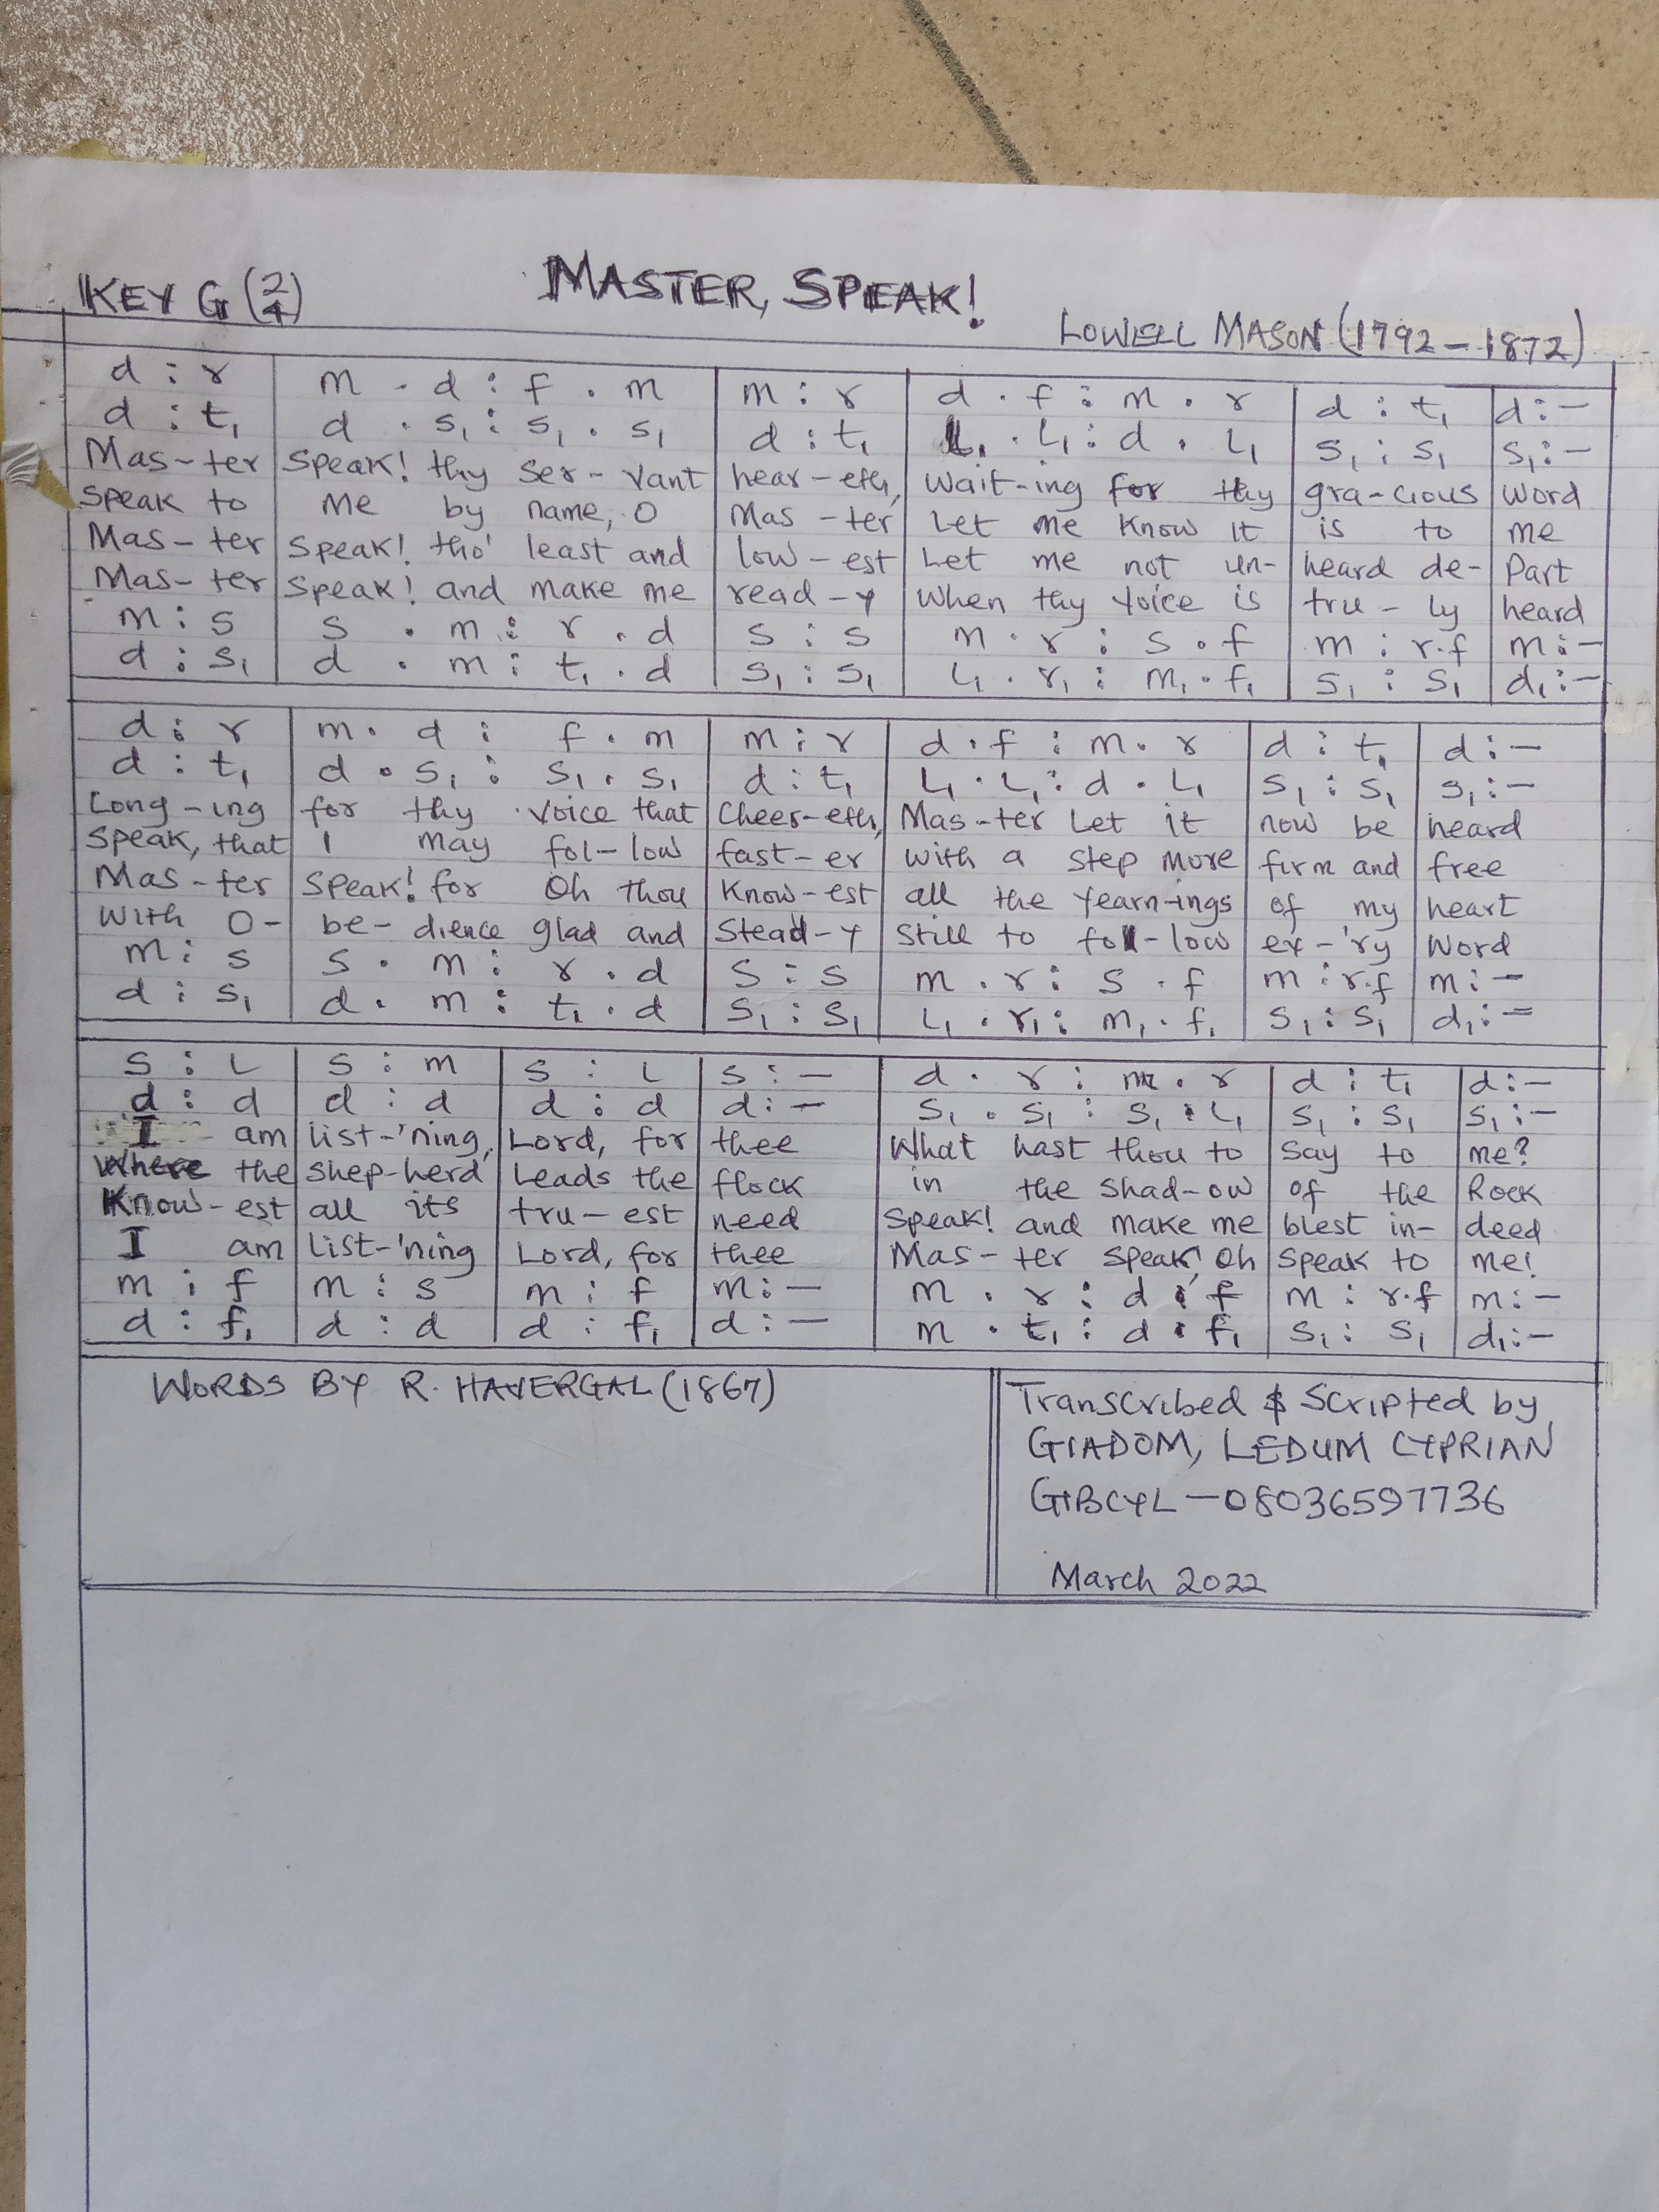 KEY G (2/4) MASTER, SPEAK!
LOWELL MASON (1792 - 1872)
d : r | m . d : f . m | m : r | d . f : m . r | d : t₁ | d : -
d : t₁ | d . s₁ : s₁ . s₁ | d : t₁ | L₁ . L₁ : d . L₁ | s₁ : s₁ | s₁ : -
Mas-ter | Speak! thy ser-vant | hear-eth, | Wait-ing for thy | gra-cious | word
Speak to | me by name, O | Mas-ter | Let me know it | is to | me
Mas-ter | Speak! tho' least and | low-est | Let me not un- | heard de- | Part
Mas-ter | Speak! and make me | read-y | When thy voice is | tru-ly | heard
m : s | s . m : r . d | s : s | m . r : s . f | m : r.f | m : -
d : s₁ | d . m : t₁ . d | s₁ : s₁ | L₁ . r₁ : m₁ . f₁ | s₁ : s₁ | d₁ : -
d : r | m . d : f . m | m : r | d . f : m . r | d : t₁ | d : -
d : t₁ | d . s₁ : s₁ . s₁ | d : t₁ | L₁ . L₁ : d . L₁ | s₁ : s₁ | s₁ : -
Long-ing | for thy voice that | Cheer-eth, | Mas-ter Let it | now be | heard
Speak, that | I may fol-low | fast-er | with a step more | firm and | free
Mas-ter | Speak! for Oh thou | Know-est | all the Yearn-ings | of my | heart
With O- | be-dience glad and | Stead-y | Still to fol-low | ev-'ry | Word
m : s | s . m : r . d | s : s | m . r : s . f | m : r.f | m : -
d : s₁ | d . m : t₁ . d | s₁ : s₁ | L₁ . r₁ : m₁ . f₁ | s₁ : s₁ | d₁ : -
s : L | s : m | s : L | s : - | d . r : m . r | d : t₁ | d : -
d : d | d : d | d : d | d : - | s₁ . s₁ : s₁ . L₁ | s₁ : s₁ | s₁ : -
I am | list-'ning, | Lord, for | thee | What hast thou to | Say to | me?
Where the | shep-herd | Leads the | flock | in the Shad-ow | of the | Rock
Know-est | all its | tru-est | need | Speak! and make me | blest in- | deed
I am | list-'ning | Lord, for | thee | Mas-ter Speak! Oh | Speak to | me!
m : f | m : s | m : f | m : - | m . r : d . f | m : r.f | m : -
d : f₁ | d : d | d : f₁ | d : - | m . t₁ : d . f₁ | s₁ : s₁ | d₁ : -
WORDS BY R. HAVERGAL (1867)
Transcribed & Scripted by
GIADOM, LEDUM CYPRIAN
GIBCYL - 08036597736
March 2022